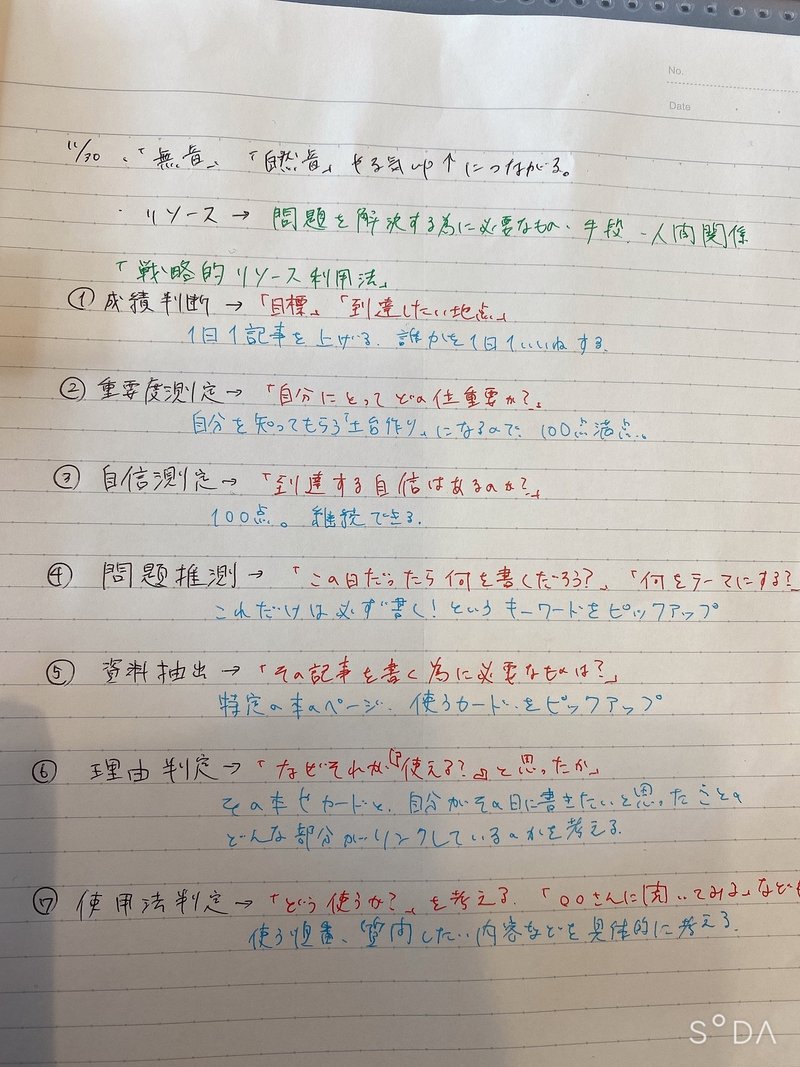 No.
Date
11/30 ・「無音」、「自然音」やる気up↑につながる。
・リソース→ 問題を解決する為に必要なもの・手段・人間関係
「戦略的リソース利用法」
① 成績判断→「目標」「到達したい地点」
1日1記事を上げる、誰かを1日1いいねする。
② 重要度測定→「自分にとってどの位重要か?」
自分を知ってもらう「土台作り」になるので、100点満点。
③ 自信測定→「到達する自信はあるのか?」
100点。継続できる。
④ 問題推測→「この日だったら何を書くだろう?」「何をテーマにする?
これだけは必ず書く!というキーワードをピックアップ
⑤ 資料抽出→「その記事を書く為に必要なものは?」
特定の本のページ、使うカードをピックアップ
⑥ 理由判定→「なぜそれが『使える?』と思ったか」
その本やカードと、自分がその日に書きたいと思ったことの
どんな部分がリンクしているのかを考える。
⑦ 使用法判定→「どう使うか?」を考える。「〇〇さんに聞いてみる」など
使う順番、質問したい内容などを具体的に考える。
SODA